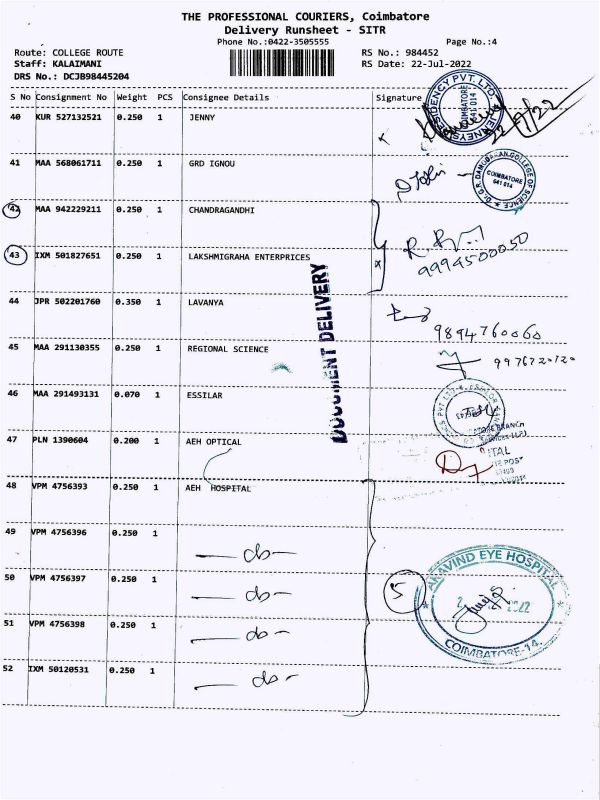 THE PROFESSIONAL COURIERS, Coimbatore
Delivery Runsheet - SITR
Phone No.:0422-3505555 Page No.:4
Route: COLLEGE ROUTE RS No.: 984452
Staff: KALAIMANI RS Date: 22-Jul-2022
DRS No.: DCJB98445204
S No Consignment No Weight PCS Consignee Details Signature
40 KUR 527132521 0.250 1 JENNY
RESIDENCY PVT. LTD. COIMBATORE 641 014
41 MAA 568061711 0.250 1 GRD IGNOU
COLLEGE OF SCIENCE COIMBATORE 641 014
42 MAA 942229211 0.250 1 CHANDRAGANDHI
43 IXM 501827651 0.250 1 LAKSHMIGRAHA ENTERPRICES
9994500050
DOCUMENT DELIVERY
44 JPR 502201760 0.350 1 LAVANYA
9894760060
45 MAA 291130355 0.250 1 REGIONAL SCIENCE
46 MAA 291493131 0.070 1 ESSILAR
47 PLN 1390604 0.200 1 AEH OPTICAL
48 VPM 4756393 0.250 1 AEH HOSPITAL
49 VPM 4756396 0.250 1 - do -
50 VPM 4756397 0.250 1 - do -
51 VPM 4756398 0.250 1 - do -
52 IXM 50120531 0.250 1 - do -
5
ARAVIND EYE HOSPITAL
2022
COIMBATORE-14.